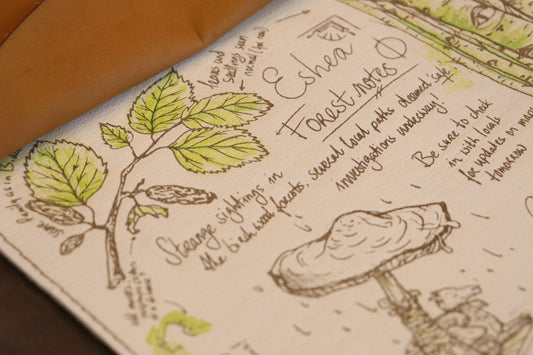 Eshea
Forest notes
leaves and
seedlings seem
normal (for now)
Strange sightings in
the birchwood forests, several local paths deemed 'safe'
investigations underway!
Be sure to check
in with locals
for updates in
tomorrow
some